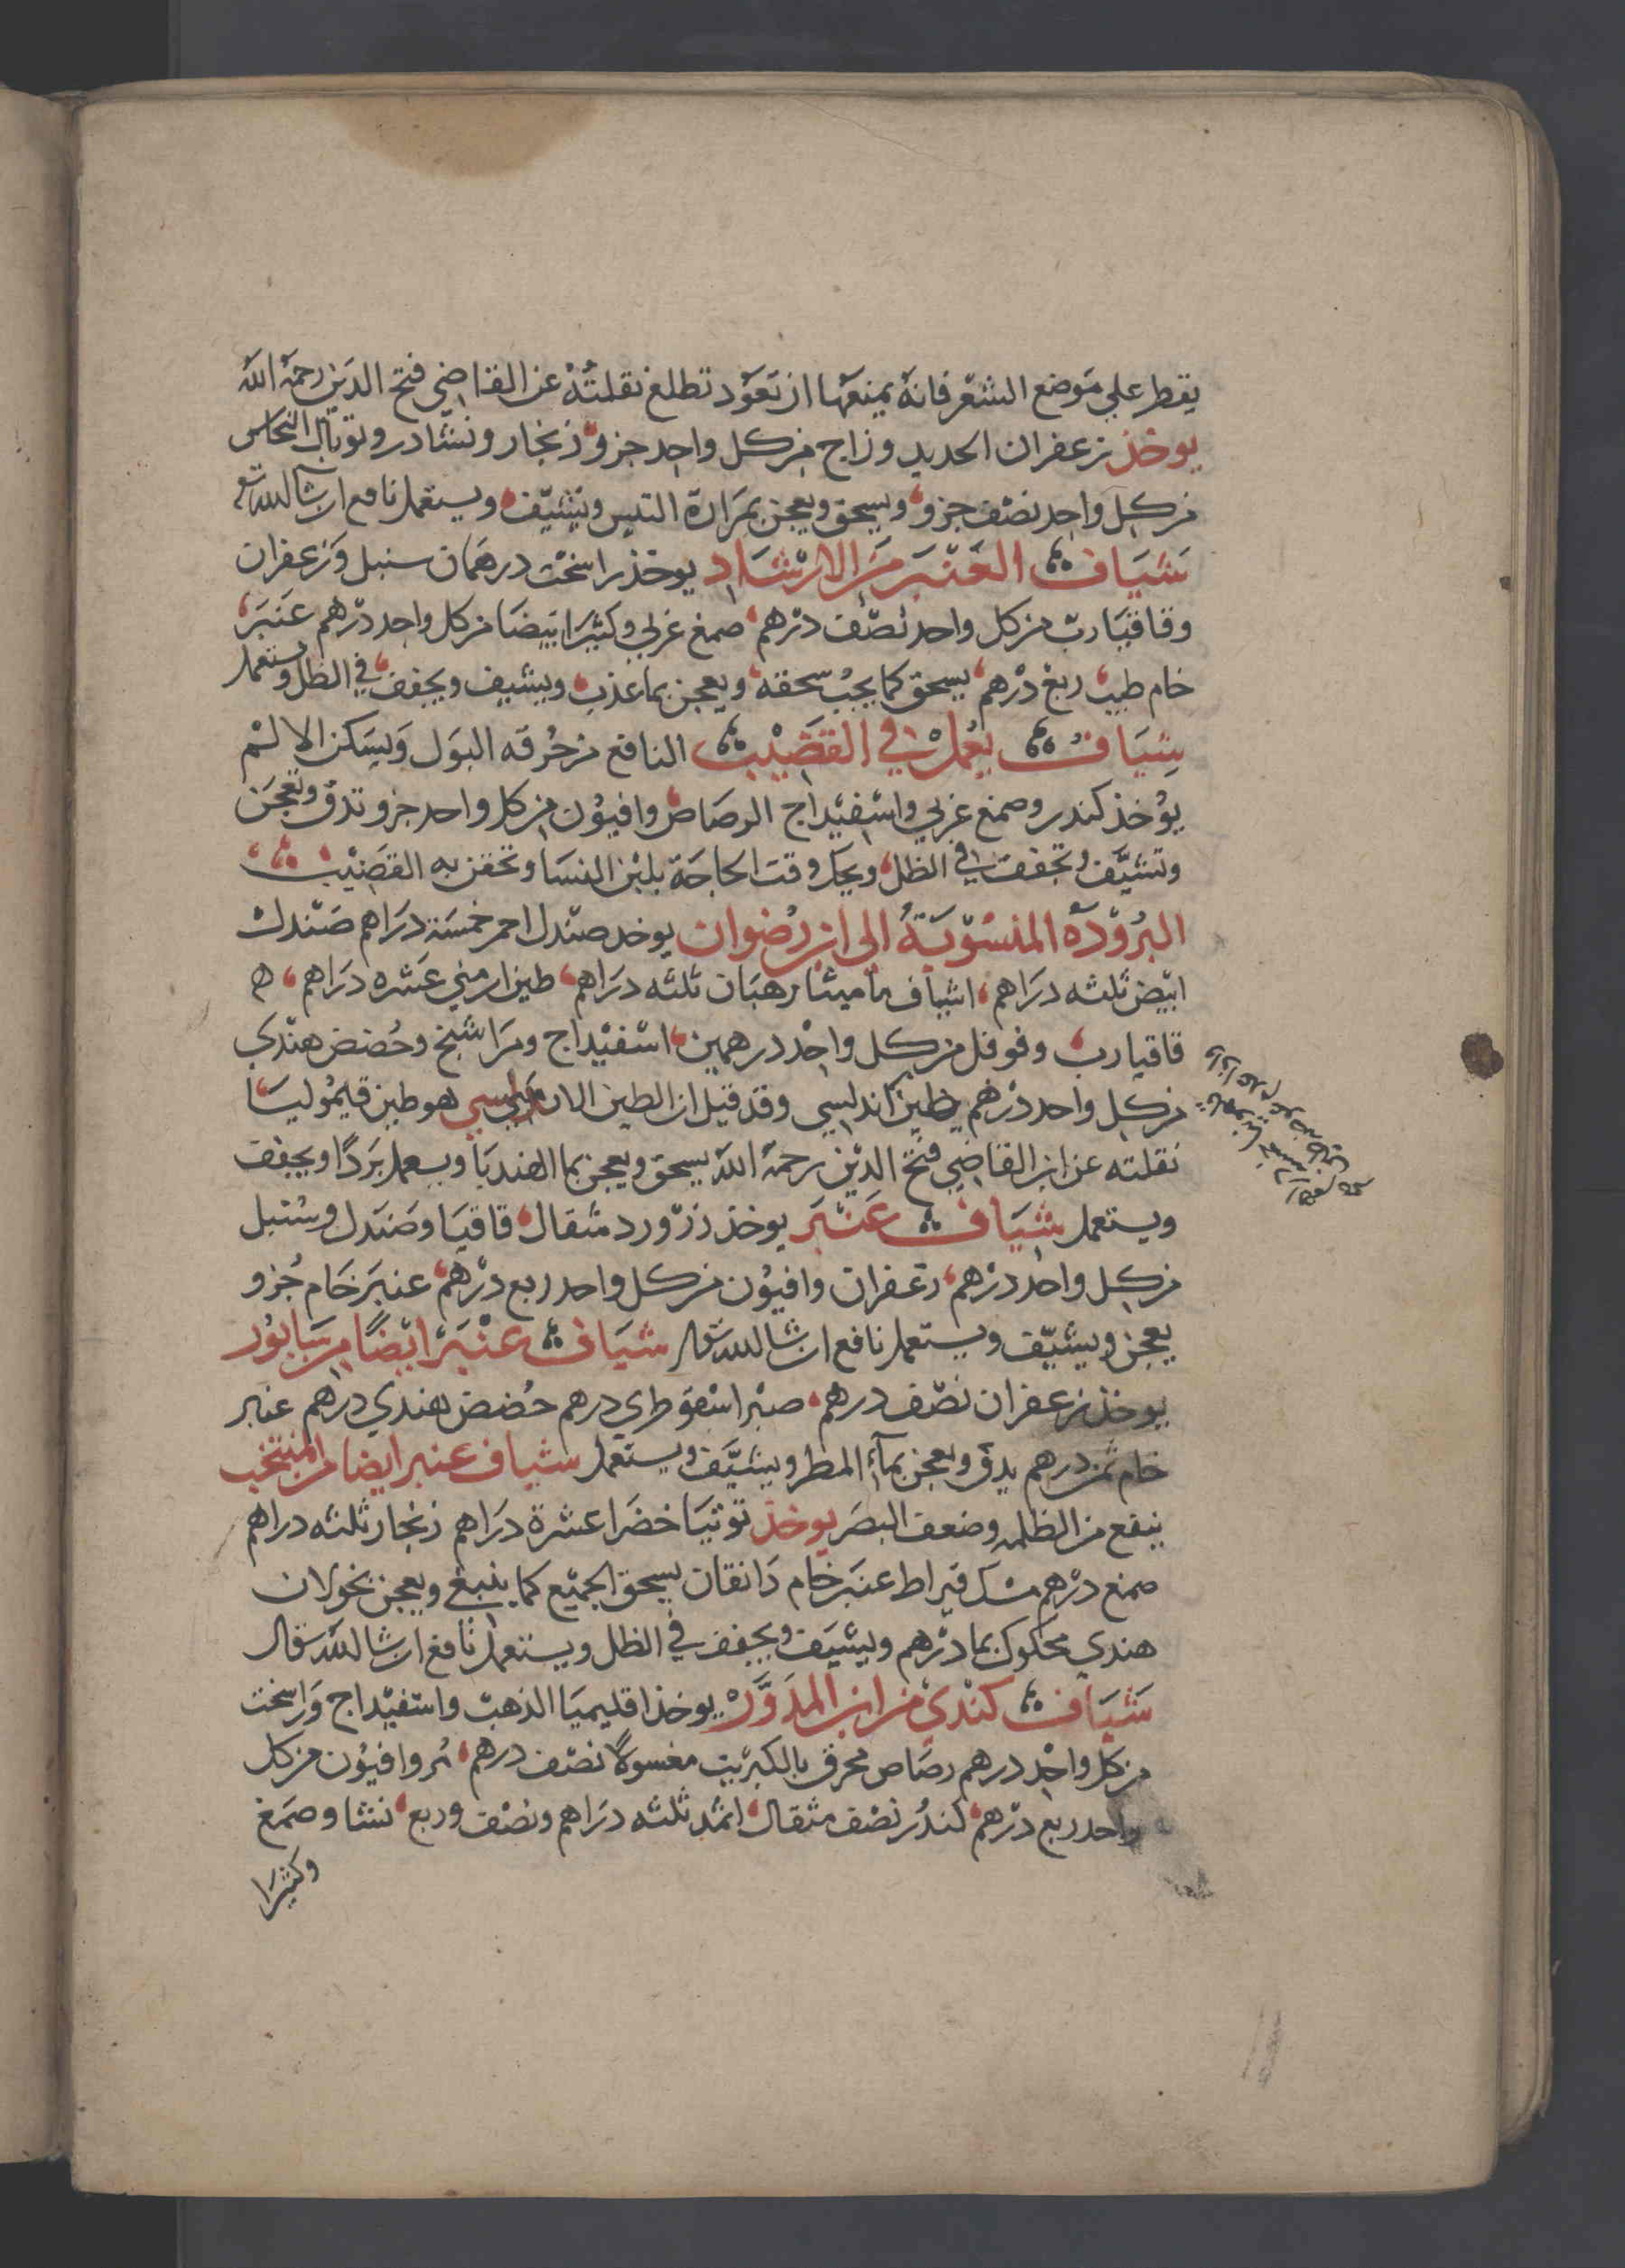 يقطر علي موضع الشعر فانهٔ يمنعها ان تعود تطلع نقلتُهُ عن القاضي فتح الدين رحمهٔ الله
يوخذ زعفران الحديد وزاج من كل واحد جزو زنجار ونشادر وتوبال النحاس
من كل واحد نصف جزو ويسحق ويعجن بمرارة التيس ويشيّف ويستعمل نافع ان شا الله تع
شياف العنبر من الارشاد يوخذ راسخت درهمان سنبل وزعفران
وقاقيا رب من كل واحد نصف درهم صمغ عربي وكثيرا بيضا من كل واحد درهم عنبر
خام طيب ربع درهم يسحق كما يجب سحقه ويعجن بما عذب ويشيف ويجفف في الظل ويستعمل
شياف يعمل في القضيب النافع من حرقه البول ويسكن الالم
يوخذ كندر وصمغ عربي واسفيداج الرصاص وافيون من كل واحد جزو تدق وتعجن
وتشيّف وتجفف في الظل ويحك وقت الحاجة بلبن النسا وتحقن به القضيب
البرودة المنسوبة الى ابن رضوان يوخد صندل احمر خمسة دراهم صندل
ابيض ثلثه دراهم اشياف ماميثا رهبان ثلثه دراهم طين ارمني عشره دراهم
قاقيا رب وفوفل من كل واحد درهمين اسفيداج ومراشنج وحُضض هندي
من كل واحد درهم طين اندلسي وقد قيل ان الطين الاندلسي هو طين قيموليا
نقلته عن ابن القاضي فتح الدين رحمهٔ الله يسحق ويعجن بما الهندبا ويعمل بَردًا ويجفف
ويستعمل شياف عنبر يوخذ زرورد مثقال قاقيا وصندل وسنبل
من كل واحد درهم زعفران وافيون من كل واحد ربع درهم عنبر خام جُزو
يعجن ويشيّف ويستعمل نافع ان شا الله تعالى شياف عنبر ايضًا من سابور
يوخذ زعفران نصف درهم صبر اسقوطري درهم حُضض هندي درهم عنبر
خام ثمن درهم يدق ويعجن بمآء المطر ويشيّف ويستعمل شياف عنبر ايضا من المنتخب
ينفع من الظلمه وضعف البصر يوخذ توتيا خضرا عشرة دراهم زنجار ثلثه دراهم
صمغ درهم مسك قيراط عنبر خام دانقان يسحق الجميع كما ينبغي ويعجن بخولان
هندي محكوك بما درهم ويشيف ويجفف في الظل ويستعمل نافع ان شا الله تعالى
شياف كندي من ابن المدوّر يوخذ اقليميا الذهب واسفيداج وراسخت
من كل واحد درهم رصاص محرق بالكبريت مغسولًا نصف درهم مر وافيون من كل
واحد ربع درهم كندر نصف مثقال اثمد ثلثه دراهم ونصف وربع نشا وصمغ
وكثيرا